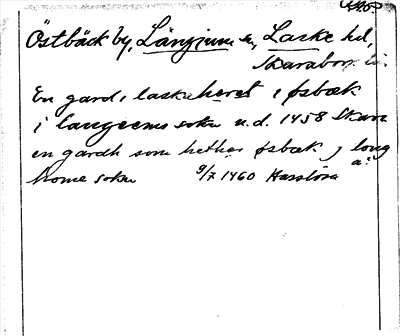 Östbäck by, Längjum sn, Laske hd,
Skarabor. län.
En gard i laskeheret i øsbæk
i langeems sokn u.d. 1458 Skara
en gardh som hether øsbæk j long
home sokn 9/7 1460 Hasslösa